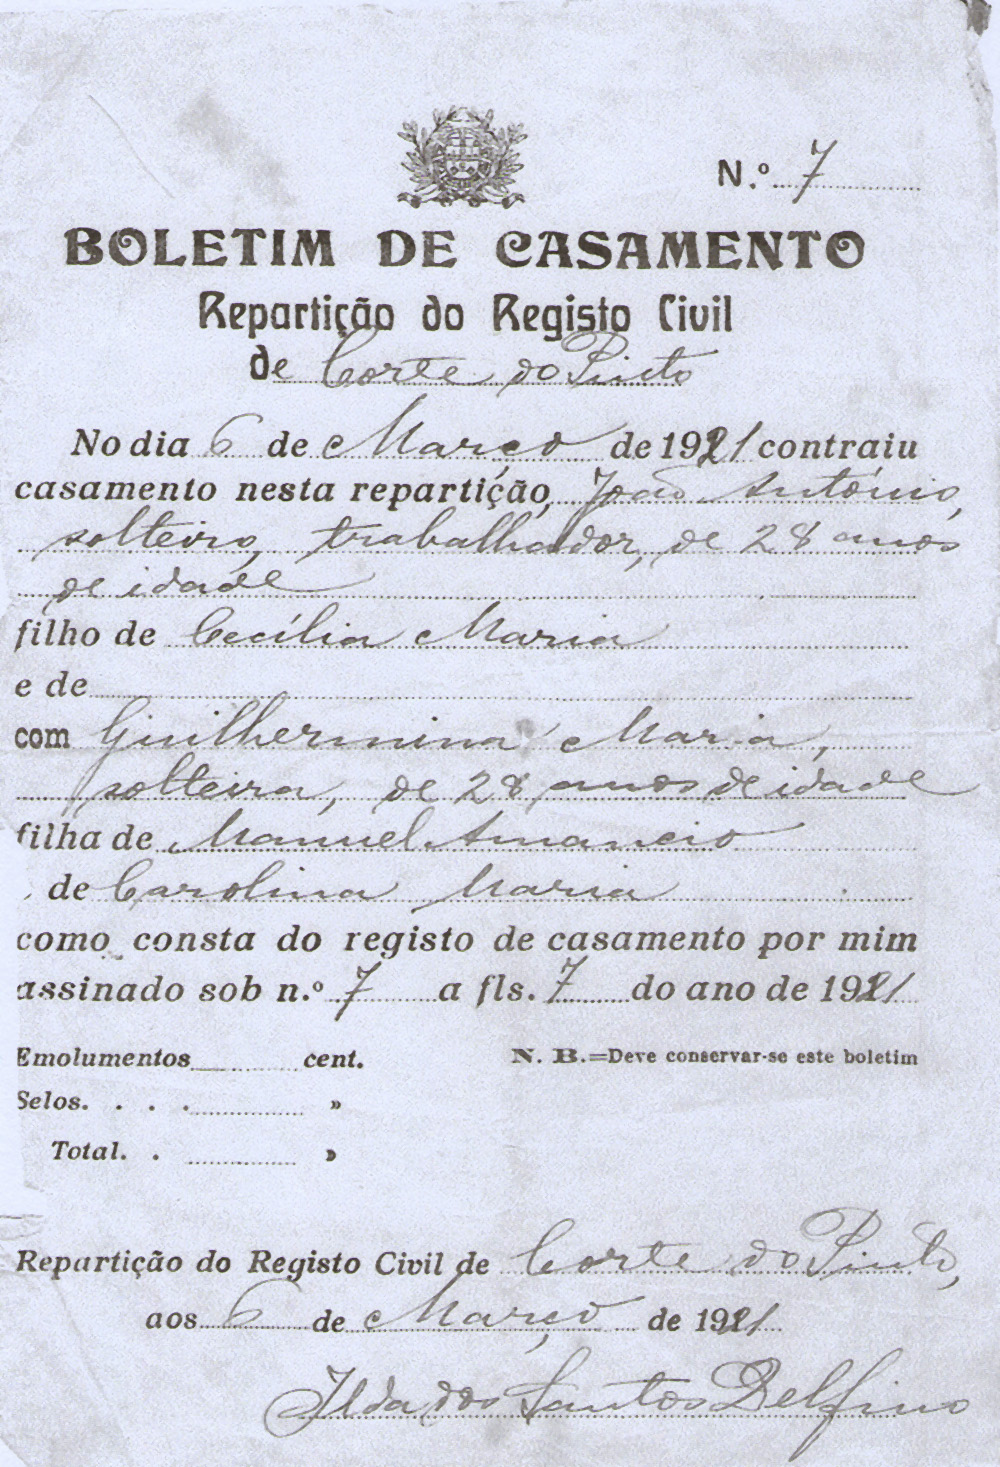 N.º 7
BOLETIM DE CASAMENTO
Repartição do Registo Civil
de Corte do Pinto
No dia 6 de Março de 1921 contraiu
casamento nesta repartição, João António,
solteiro, trabalhador, de 28 anos
de idade
filho de Cecília Maria
e de
com Guilhermina Maria,
solteira, de 28 anos de idade
filha de Manuel Amancio
de Carolina Maria
como consta do registo de casamento por mim
assinado sob n.º 7 a fls. 7 do ano de 1921
Emolumentos cent.
N. B.=Deve conservar-se este boletim
Selos. . . . »
Total. . »
Repartição do Registo Civil de Corte do Pinto,
aos 6 de Março de 1921
Ilda dos Santos Delfino